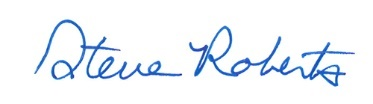 Steve Roberts